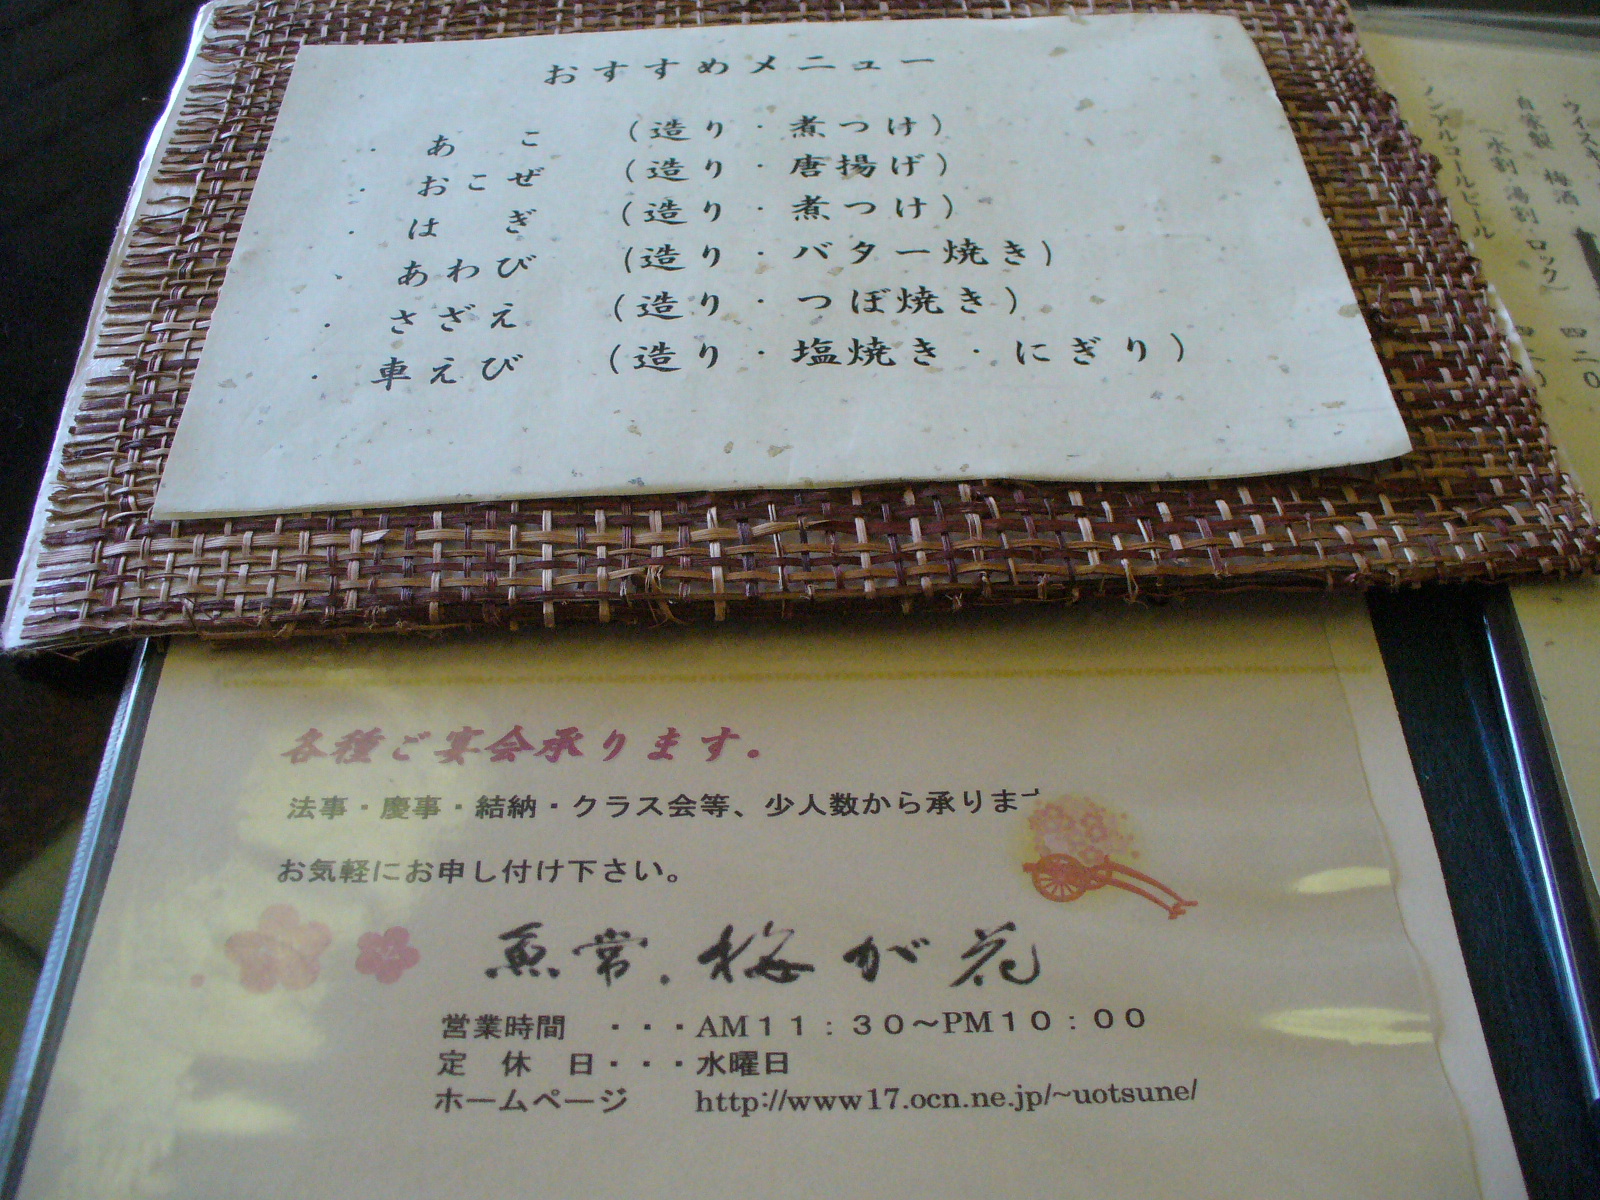 おすすめメニュー
・ あこ (造り・煮つけ)
・ おこぜ (造り・唐揚げ)
・ はぎ (造り・煮つけ)
・ あわび (造り・バター焼き)
・ さざえ (造り・つぼ焼き)
・ 車えび (造り・塩焼き・にぎり)
ウイスキ
自家製 梅酒
(水割・湯割・ロック)
ノンアルコールビール
各種ご宴会承ります。
法事・慶事・結納・クラス会等、少人数から承りま
お気軽にお申し付け下さい。
魚常.梅が花
営業時間 ・・・AM11:30〜PM10:00
定休日・・・水曜日
ホームページ http://www17.ocn.ne.jp/~uotsune/